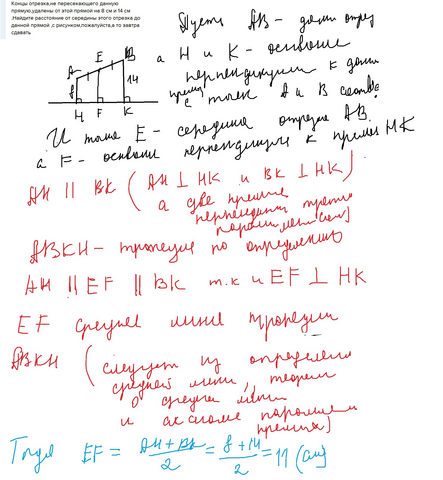 Концы отрезка,не пересекающего данную
прямую,удалены от этой прямой на 8 см и 14 см
.Найдите расстояние от середины этого отрезка до
данной прямой ,с рисунком,пожалуйста,а то завтра
сдавать
Пусть AB - данн отрез
а H и K - основание
перпендикуляров к данной
прямой с точек A и B соотв.
A E B
8 14
H F K
И точка E - середина отрезка AB.
а F - основание перпендикуляра к прямой HK
AH || BK ( AH ⊥ HK и BK ⊥ HK )
а две прямые
ABKH - трапеция по определению
AH || EF || BK т.к и EF ⊥ HK
EF средняя линия трапеции
ABKH ( следует из определения
средней линии, теорем
о средн линии
и аксиоме параллельн
прямых)
Тогда EF = AH + BK / 2 = 8 + 14 / 2 = 11 (см)